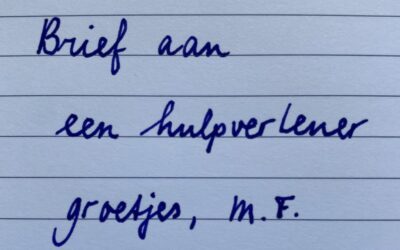 Brief aan
een hulpverlener
groetjes, M.F.